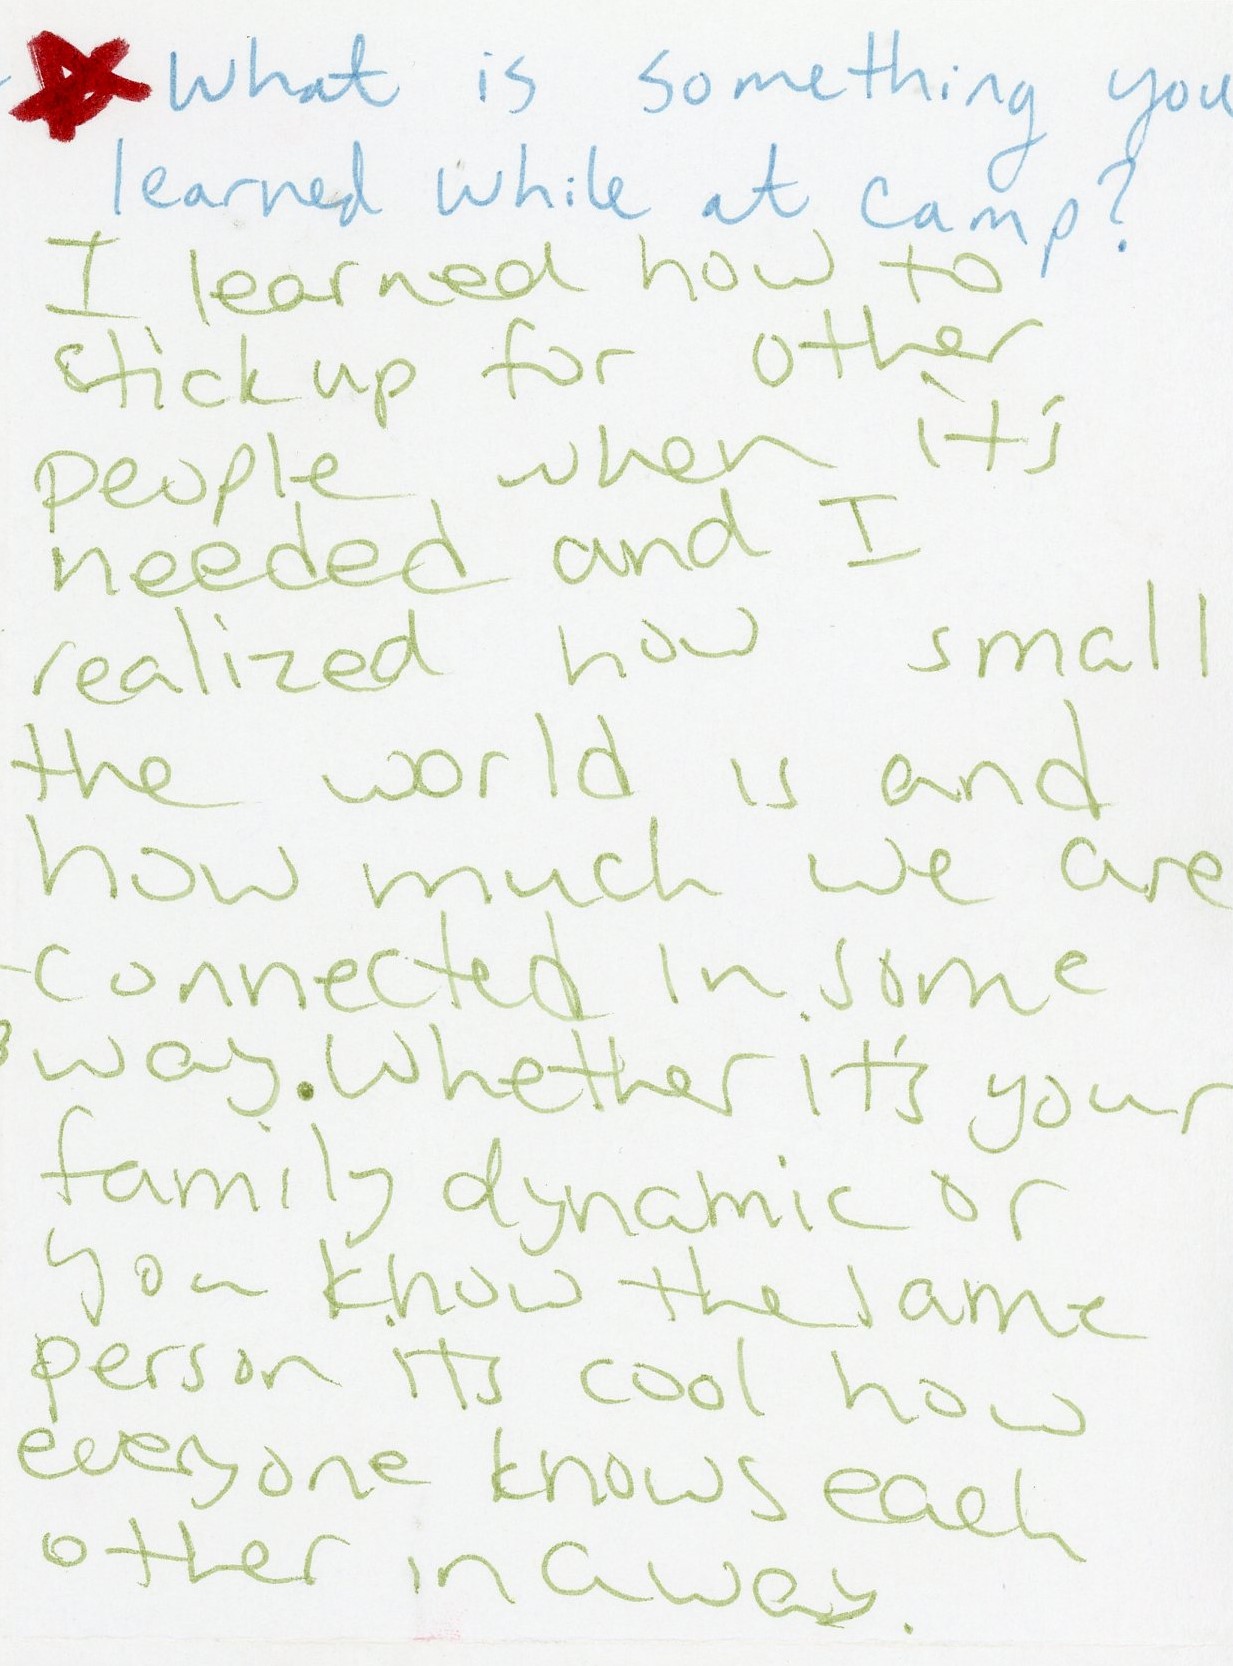 What is something you
learned while at camp?
I learned how to
stick up for other
people when it's
needed and I
realized how small
the world is and
how much we are
connected in some
way. Whether it's your
family dynamic or
you know the same
person it's cool how
everyone knows each
other in a way.